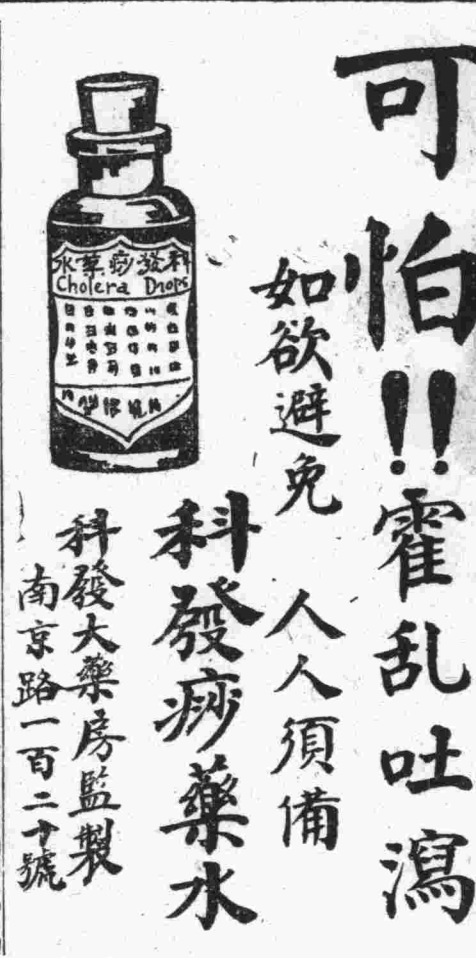 可怕!!霍乱吐瀉
如欲避免 人人須備
科發痧藥水
科發大藥房監製
南京路一百二十號
科發痧藥水
Cholera Drops